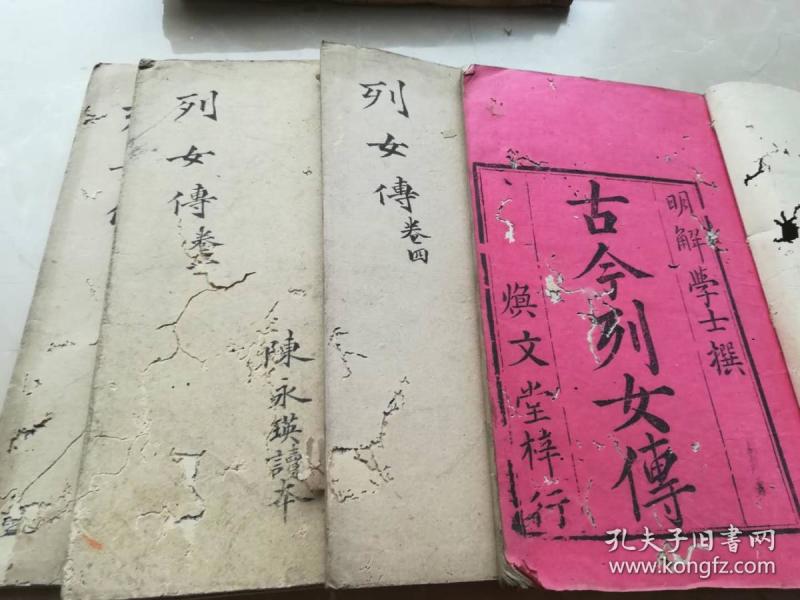 明解學士撰
古今列女傳
煥文堂梓行
列女傳卷四
列女傳
陳永鍈讀本
孔夫子旧书网
www.kongfz.com